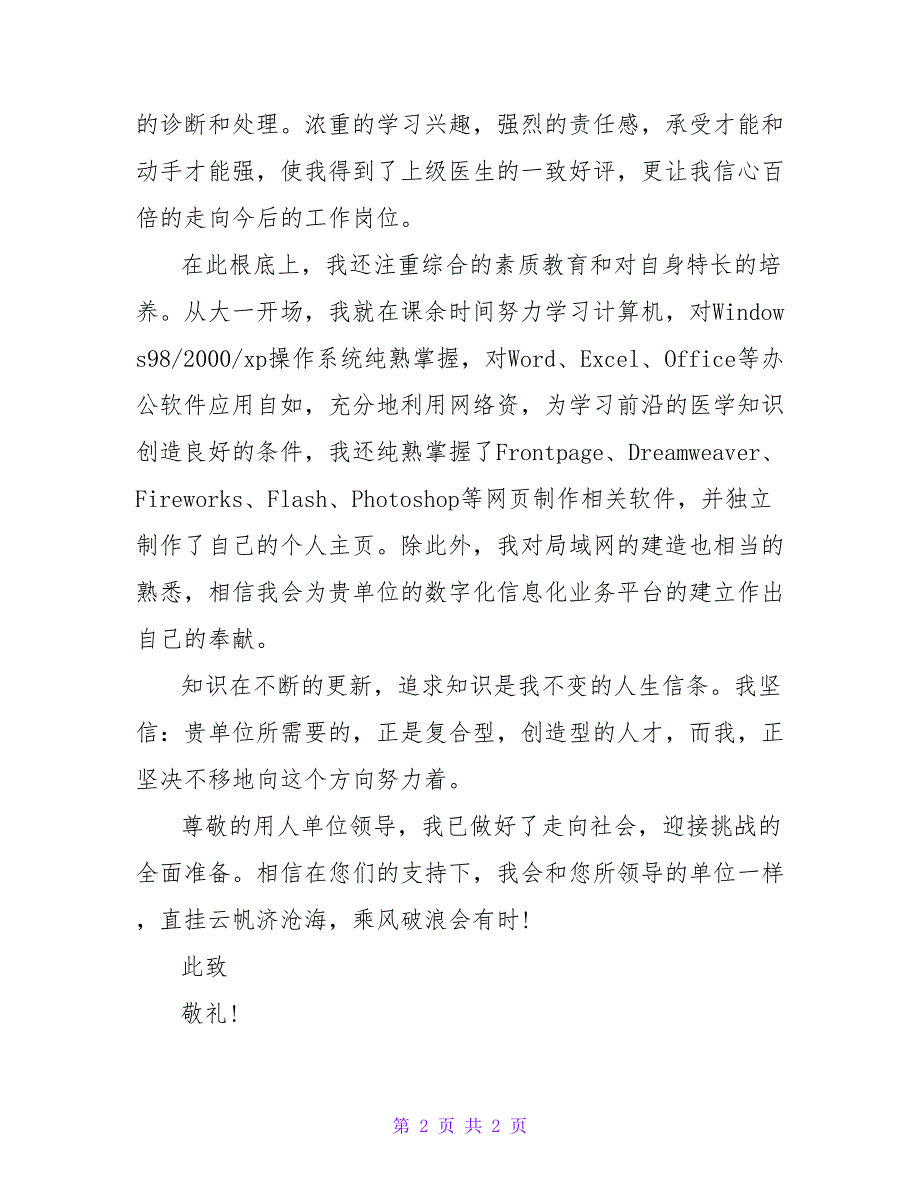 的诊断和处理。浓重的学习兴趣，强烈的责任感，承受才能和
动手才能强，使我得到了上级医生的一致好评，更让我信心百
倍的走向今后的工作岗位。
在此根底上，我还注重综合的素质教育和对自身特长的培
养。从大一开场，我就在课余时间努力学习计算机，对Window
s98/2000/xp操作系统纯熟掌握，对Word、Excel、Office等办
公软件应用自如，充分地利用网络资，为学习前沿的医学知识
创造良好的条件，我还纯熟掌握了Frontpage、Dreamweaver、
Fireworks、Flash、Photoshop等网页制作相关软件，并独立
制作了自己的个人主页。除此外，我对局域网的建造也相当的
熟悉，相信我会为贵单位的数字化信息化业务平台的建立作出
自己的奉献。
知识在不断的更新，追求知识是我不变的人生信条。我坚
信：贵单位所需要的，正是复合型，创造型的人才，而我，正
坚决不移地向这个方向努力着。
尊敬的用人单位领导，我已做好了走向社会，迎接挑战的
全面准备。相信在您们的支持下，我会和您所领导的单位一样
，直挂云帆济沧海，乘风破浪会有时!
此致
敬礼!
第 2 页 共 2 页